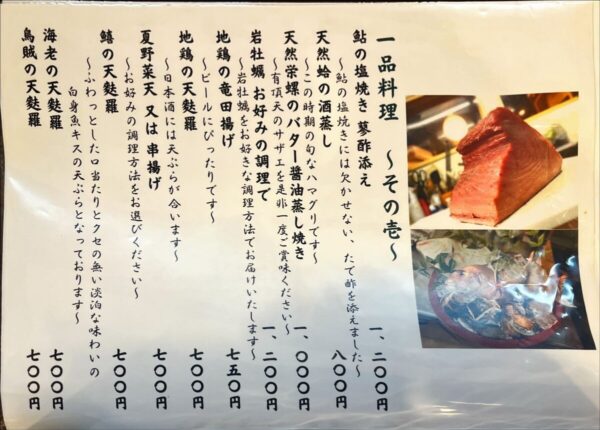 一品料理　～その壱～
鮎の塩焼き 蓼酢添え　一、二〇〇円
～鮎の塩焼きには欠かせない、たで酢を添えました～
天然蛤の酒蒸し　八〇〇円
～この時期の旬なハマグリです～
天然栄螺のバター醤油蒸し焼き　一、〇〇〇円
～有頂天のサザエを是非一度ご賞味ください～
岩牡蠣 お好みの調理で　一、二〇〇円
～岩牡蠣をお好きな調理方法でお届けいたします～
地鶏の竜田揚げ　七五〇円
～ビールにぴったりです～
地鶏の天麩羅　七〇〇円
～日本酒には天ぷらが合います～
夏野菜天 又は 串揚げ　七〇〇円
～お好みの調理方法をお選びください～
鱚の天麩羅　七〇〇円
～ふわっとした口当たりとクセの無い淡泊な味わいの
白身魚キスの天ぷらとなっております～
海老の天麩羅　七〇〇円
烏賊の天麩羅　七〇〇円